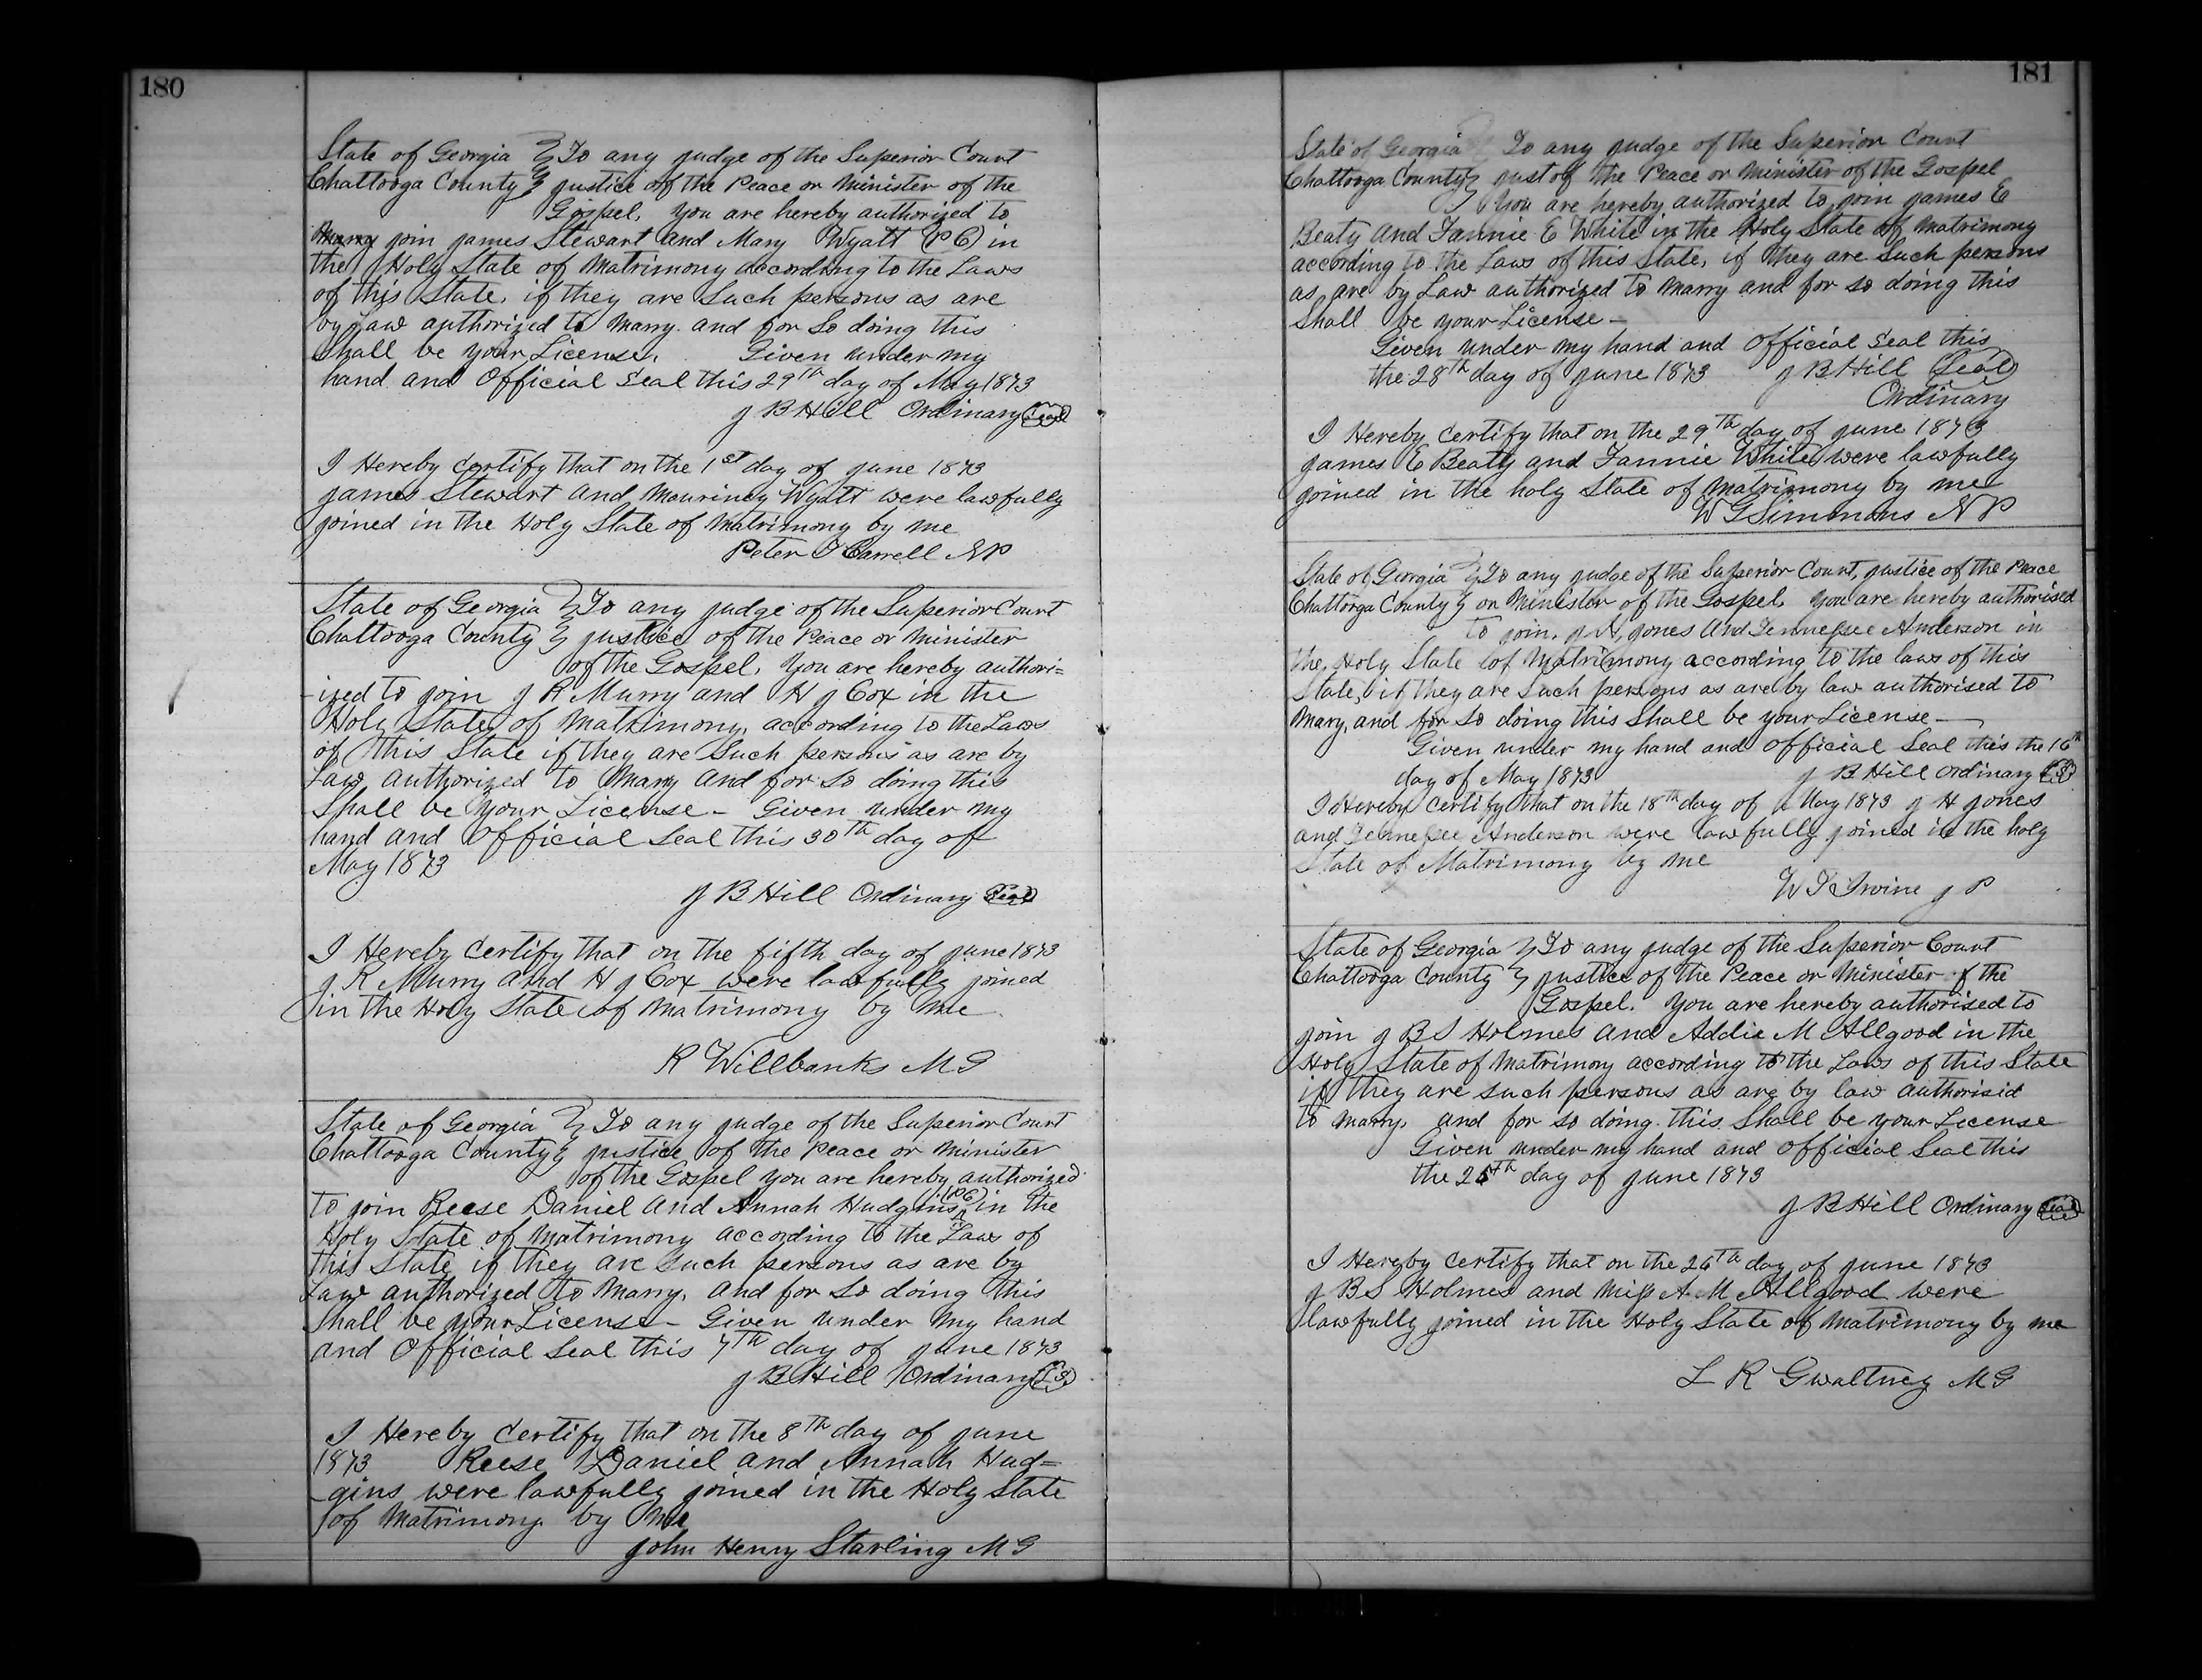 180
State of Georgia } To any judge of the Superior Court
Chattooga County } justice of the Peace or Minister of the
Gospel. You are hereby authorized to
join james Stewart and Mary Wyatt (PC) in
the Holy State of Matrimony according to the Laws
of this State, if they are Such persons as are
by Law authorized to Marry. and for So doing this
Shall be your License. Given under my
hand and Official Seal this 29th day of May 1873
J B Hill Ordinary (Seal)
I Hereby certify that on the 1st day of june 1873
james Stewart and Mouriney Wyatt were lawfully
joined in the Holy State of Matrimony by me
Peter T Carrell NP
State of Georgia } To any judge of the Superior Court
Chattooga County } justice of the Peace or Minister
of the Gospel. You are hereby authori=
-ized to join J R Murry and H J Cox in the
Holy State of Matrimony, according to the Laws
of this State if they are Such persons as are by
Law authorized to Marry and for So doing this
Shall be your License - Given under my
hand and Official Seal this 30th day of
May 1873
J B Hill Ordinary (Seal)
I Hereby certify that on the fifth day of june 1873
J R Murry and H J Cox were lawfully joined
in the Holy State of Matrimony by me
R Willbanks MG
State of Georgia } To any judge of the Superior Court
Chattooga County } justice of the Peace or Minister
of the Gospel you are hereby authorized
To join Reese Daniel and Annah Hudgins (PC) in the
Holy State of Matrimony according to the Laws of
this State if they are such persons as are by
Law authorized to Marry, and for So doing this
Shall be your License - Given under my hand
and Official Seal this 7th day of june 1873
J B Hill Ordinary (LS)
I Hereby certify that on the 8th day of june
1873 Reese Daniel and Annah Hud=
-gins were lawfully joined in the Holy State
of Matrimony by Me
John Henry Starling MG
181
State of Georgia } To any judge of the Superior Court
Chattooga County } just of the Peace or Minister of the Gospel
You are hereby authorized to join james E
Beaty and Fannie E White in the Holy State of Matrimony
according to the Laws of this State, if they are Such persons
as are by Law authorized to Marry and for so doing this
Shall be your License -
Given under my hand and Official Seal this
the 28th day of june 1873 J B Hill (Seal)
Ordinary
I Hereby certify that on the 29th day of june 1873
james E Beaty and Fannie White were lawfully
joined in the holy State of Matrimony by me
W G Simmons NP
State of Georgia } To any judge of the Superior Court, justice of the Peace
Chattooga County } or Minister of the Gospel. You are hereby authorised
To join J H jones and Tennessee Anderson in
the Holy State of Matrimony according to the laws of this
State, if they are Such persons as are by law authorised to
Mary, and for so doing this Shall be your License -
Given under my hand and official Seal this the 16th
day of May 1873 J B Hill Ordinary (LS)
I Hereby certify that on the 18th day of May 1873 J H jones
and Tennessee Anderson were lawfully joined in the holy
State of Matrimony by me
W T Irvine J P
State of Georgia } To any judge of the Superior Court
Chattooga County } justice of the Peace or Minister of the
Gospel. You are hereby authorised to
join J B S Holmes and Addie M Allgood in the
Holy State of Matrimony according to the Laws of this State
if they are such persons as are by law authorisid
to marry, and for so doing this Shall be your License
Given under my hand and Official Seal this
the 25th day of june 1873
J B Hill Ordinary (Seal)
I Hereby certify that on the 26th day of june 1873
J B S Holmes and Miss A M Allgood were
lawfully joined in the Holy State of Matrimony by me
L R Gwaltney MG